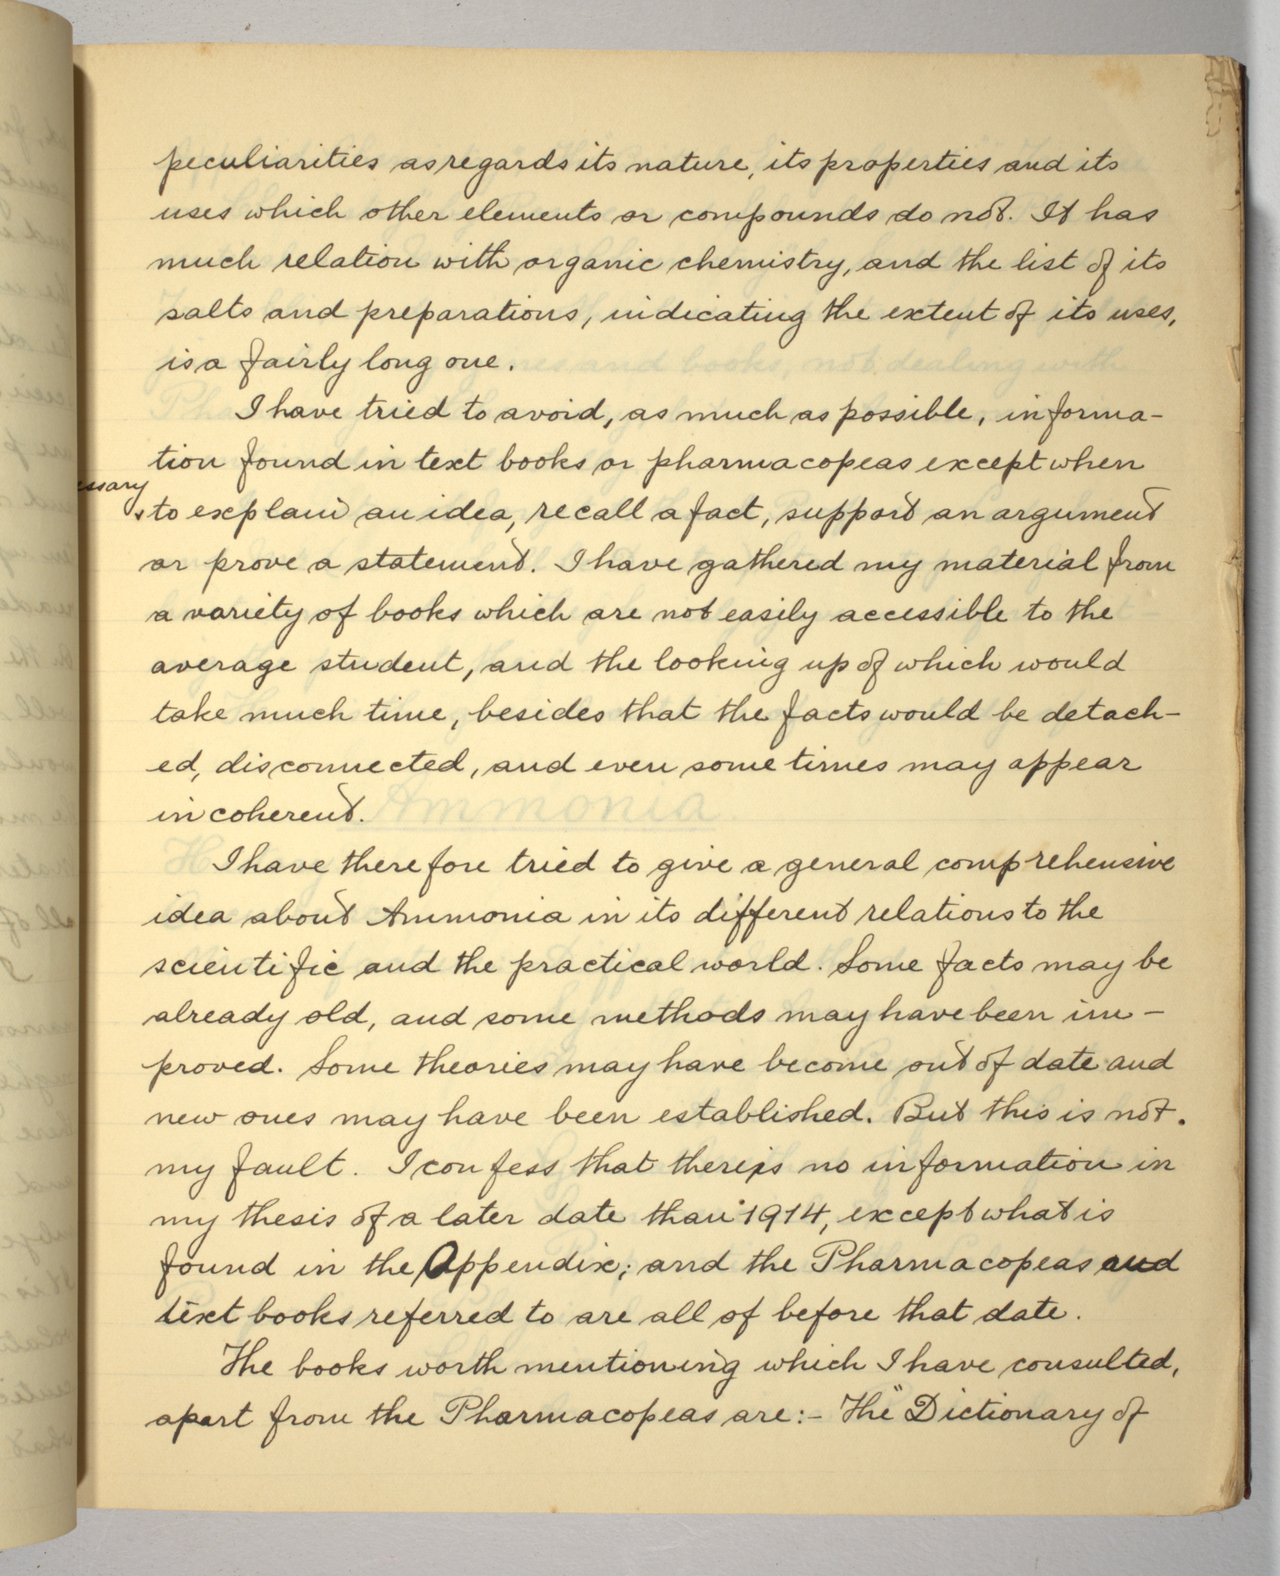 peculiarities as regards its nature, its properties and its
uses which other elements or compounds do not. It has
much relation with organic chemistry, and the list of its
salts and preparations, indicating the extent of its uses,
is a fairly long one.
I have tried to avoid, as much as possible, informa-
tion found in text books or pharmacopeas except when
essary
to explain an idea, recall a fact, support an argument
or prove a statement. I have gathered my material from
a variety of books which are not easily accessible to the
average student, and the looking up of which would
take much time, besides that the facts would be detach-
ed, disconnected, and even some times may appear
incoherent.
I have therefore tried to give a general comprehensive
idea about Ammonia in its different relations to the
scientific and the practical world. Some facts may be
already old, and some methods may have been im-
proved. Some theories may have become out of date and
new ones may have been established. But this is not.
my fault. I confess that there is no information in
my thesis of a later date than 1914, except what is
found in the Appendix; and the Pharmacopeas and
text books referred to are all of before that date.
The books worth mentioning which I have consulted,
apart from the Pharmacopeas are:- The "Dictionary of